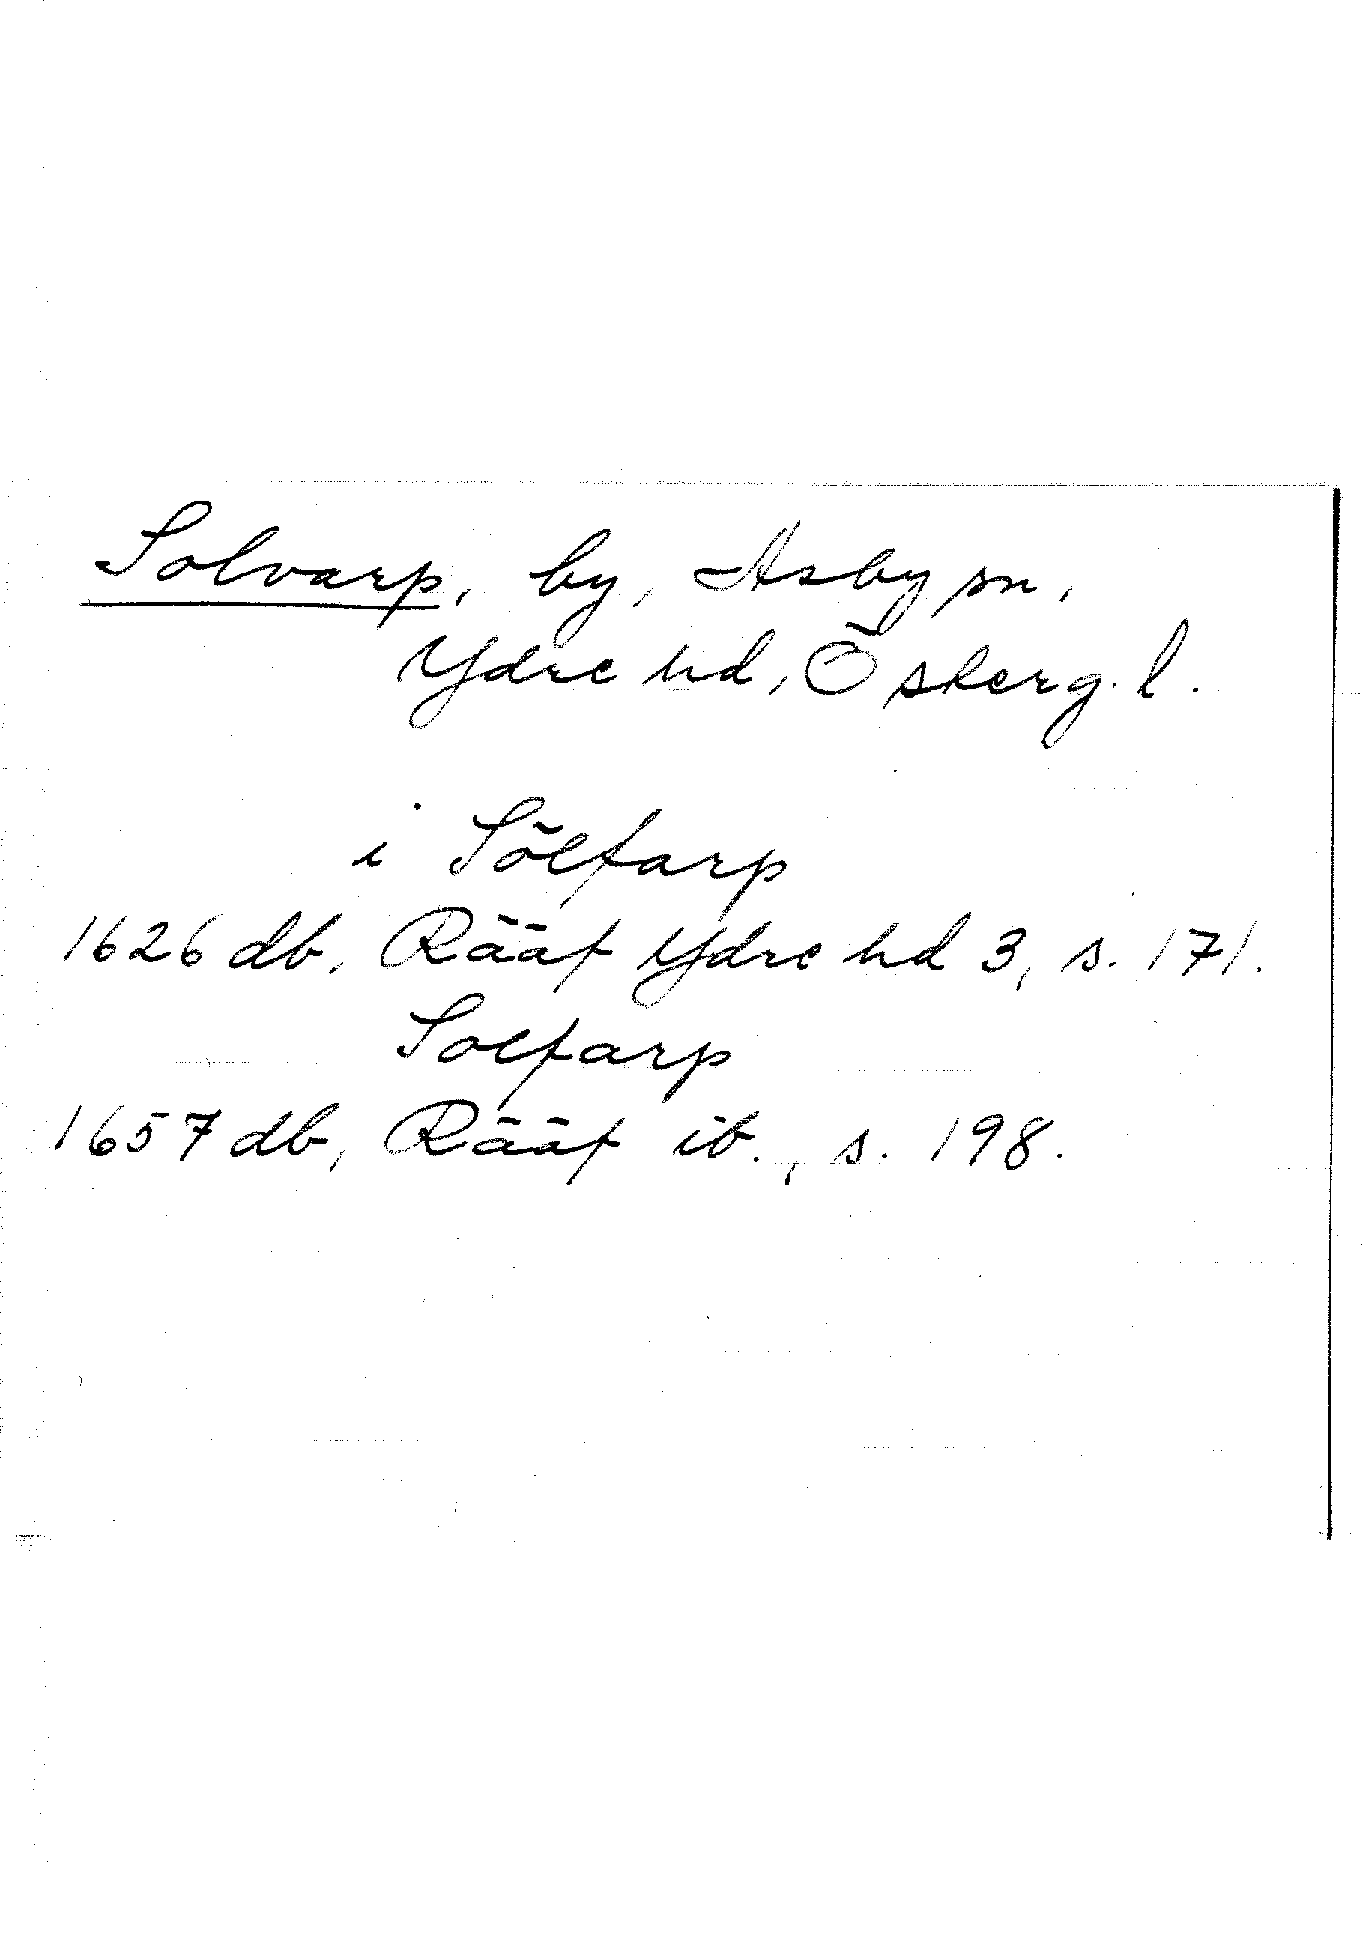 Solvarp, by, Asby sn,
Ydre hd, Österg. l.
i Sölfarp
1626 db, Rääf Ydre hd 3, s. 171.
Solfarp
1657 db, Rääf ib., s. 198.